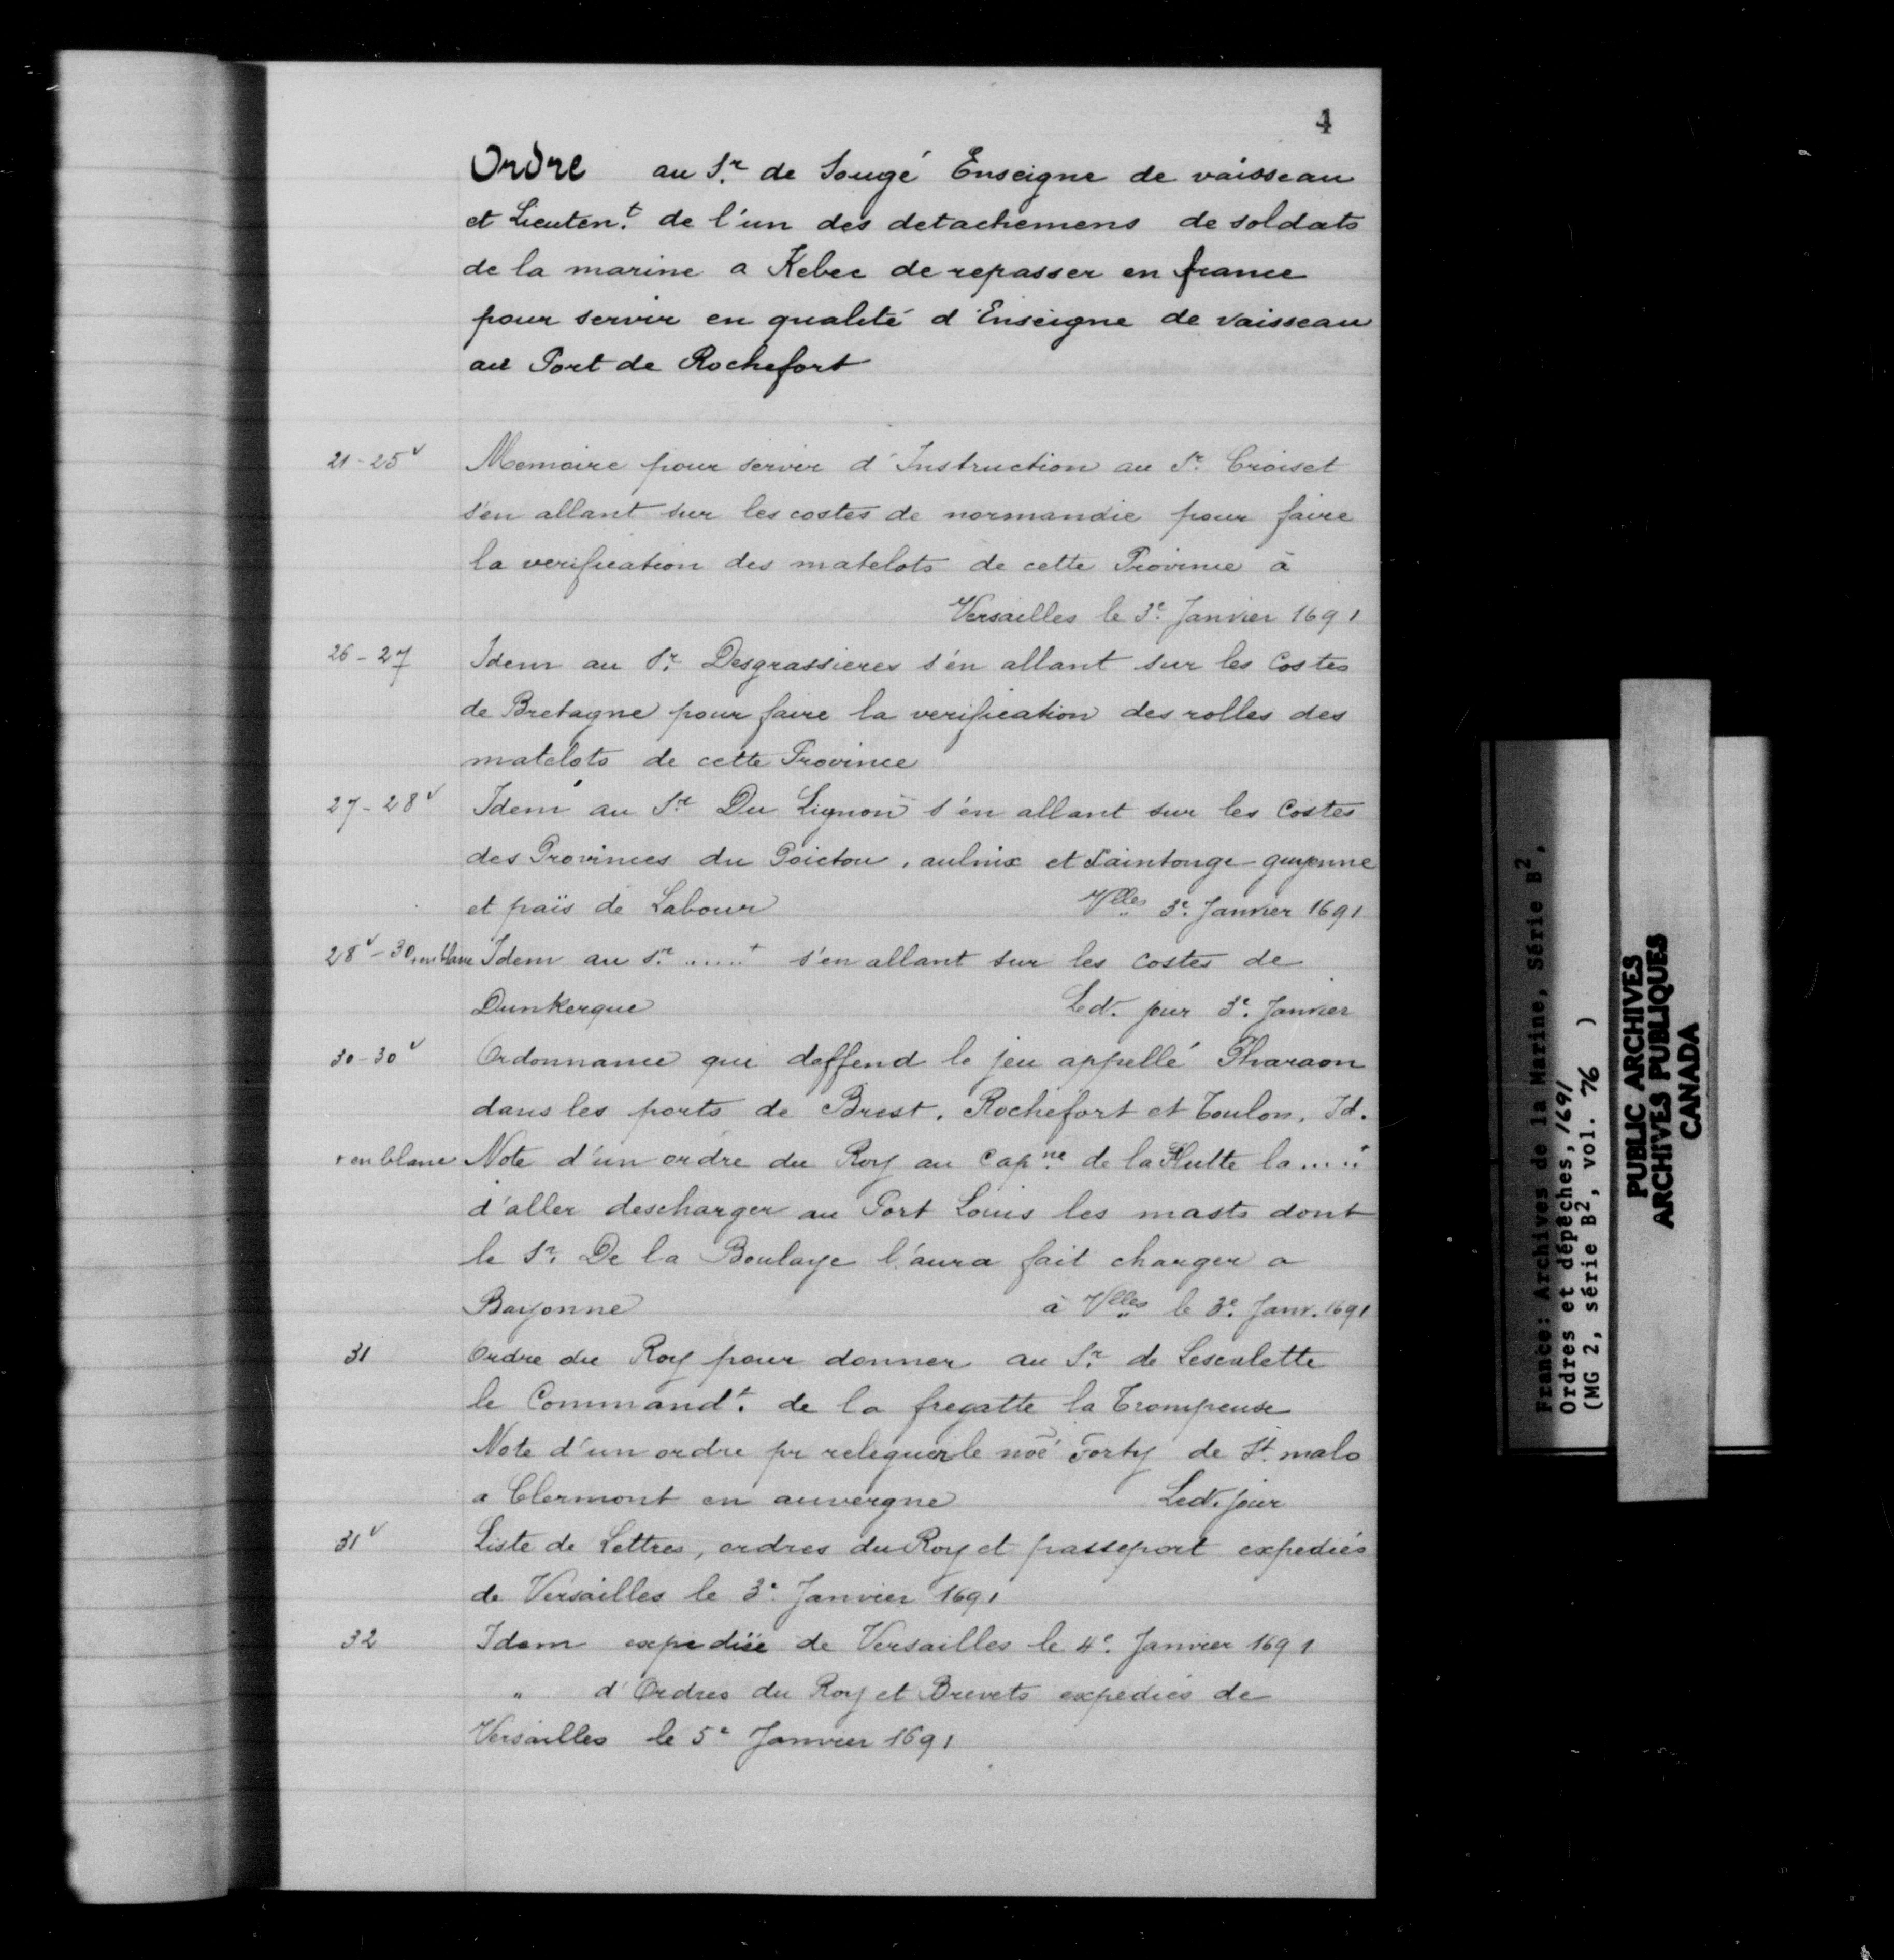 4
Ordre au Sr. de Sougé Enseigne de vaisseau
et Lieuten.t de l'un des detachemens de soldats
de la marine a Kebec de repasser en france
pour servir en qualité d'Enseigne de vaisseau
au Port de Rochefort
21-25v Memoire pour servir d'Instruction au Sr. Croiset
s'en allant sur les costes de normandie pour faire
la verification des matelots de cette Province à
Versailles le 3e. Janvier 1691
26-27 Idem au Sr. Desgrassieres s'en allant sur les Costes
de Bretagne pour faire la verification des rolles des
matelots de cette Province
27-28v Idem au Sr. Du Lignon s'en allant sur les Costes
des Provinces du Poictou, aulnix et Saintonge-guyenne
et païs de Labour Vlles 3e. Janvier 1691
28v-30 +en blanc Idem au Sr. .....+ s'en allant sur les costes de
Dunkerque Led. jour 3e. Janvier
30-30v Ordonnance qui deffend le jeu appellé Pharaon
dans les ports de Brest, Rochefort et Toulon, Id.
+ en blanc Note d'un ordre du Roy au Capne. de la Flutte la .....+
d'aller descharger au Port Louis les masts dont
le Sr. De la Boulaye l'aura fait charger a
Bayonne à Vlles le 3e. Janv. 1691
31 Ordre du Roy pour donner au Sr. de Lescalette
le Command.t de la fregatte la Trompeuse
Note d'un ordre pr releguer le noé Forty de St. malo
a Clermont en auvergne Led. jour
31v Liste de Lettres, ordres du Roy et passeport expediés
de Versailles le 3e. Janvier 1691
32 Idem expediée de Versailles le 4e. Janvier 1691
" d'Ordres du Roy et Brevets expediés de
Versailles le 5e Janvier 1691
France: Archives de la Marine, Série B2,
Ordres et dépêches, 1691
(MG 2, série B2, vol. 76 )
PUBLIC ARCHIVES
ARCHIVES PUBLIQUES
CANADA